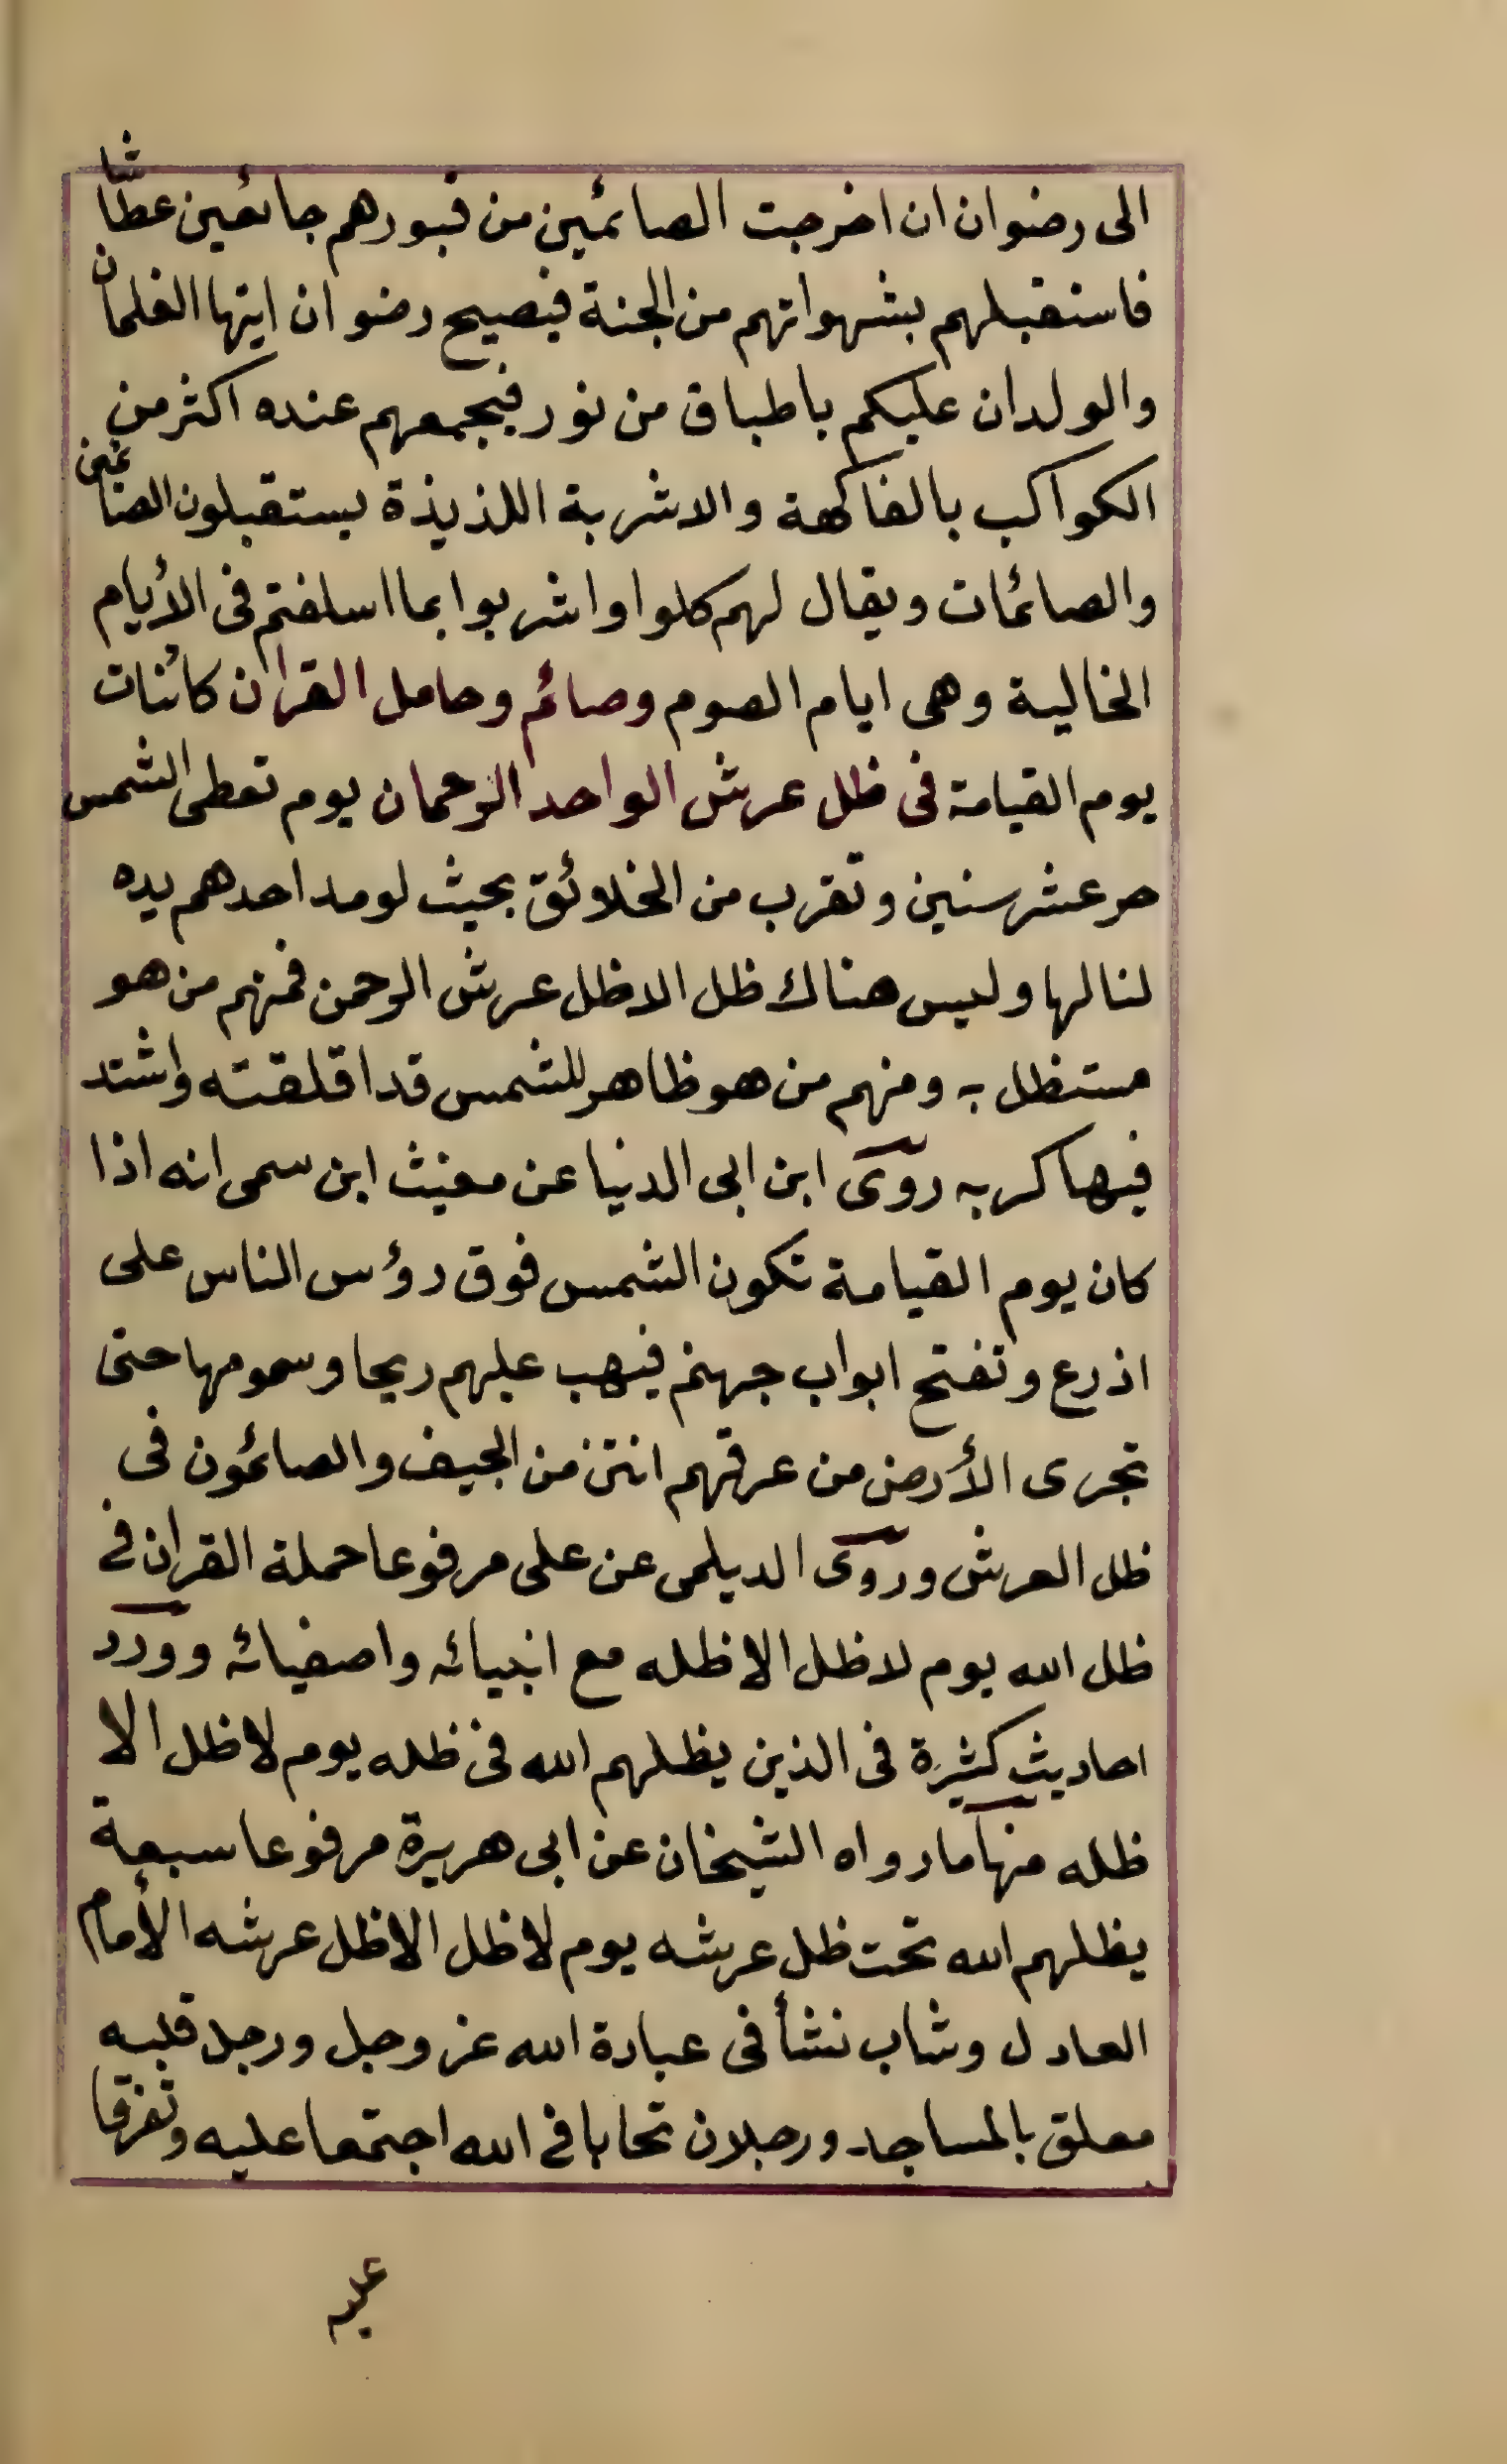 الى رضوان ان اخرجت الصائمين من قبورهم جائعين عطاشا
فاستقبلهم بشهواتهم من الجنة فيصيح رضوان ايتها الغلمان
والولدان عليكم باطباق من نور فيجمعهم عنده اكثر من
الكواكب بالفاكهة والاشربة اللذيذة يستقبلون الصائمين
والصائمات ويقال لهم كلوا واشربوا بما اسلفتم فى الأيام
الخالية وهى ايام الصوم وصائم وحامل القران كائنات
يوم القيامة فى ظل عرش الواحد الرحمان يوم تعطى الشمس
حر عشر سنين وتقرب من الخلائق بحيث لو مد احدهم يده
لنالها وليس هناك ظل الا ظل عرش الرحمن فمنهم من هو
مستظل به ومنهم من هو ظاهر للشمس قد اقلقته واشتد
فيها كربه روى ابن ابى الدنيا عن مغيث ابن سمى انه اذا
كان يوم القيامة تكون الشمس فوق رؤس الناس على
اذرع وتفتح ابواب جهنم فيهب عليهم ريحا وسمومها حتى
تجرى الأرض من عرقهم انتن من الجيف والصائمون فى
ظل العرش وروى الديلمى عن على مرفوعا حملة القران فى
ظل الله يوم لا ظل الا ظله مع انبيائه واصفيائه وورد
احاديث كثيرة فى الذين يظلهم الله فى ظله يوم لا ظل الا
ظله منها ما رواه الشيخان عن ابى هريرة مرفوعا سبعة
يظلهم الله تحت ظل عرشه يوم لا ظل الا ظل عرشه الأمام
العادل وشاب نشأ فى عبادة الله عز وجل ورجل قلبه
معلق بالمساجد ورجلان تحابا فى الله اجتمعا عليه وتفرقا
عليه